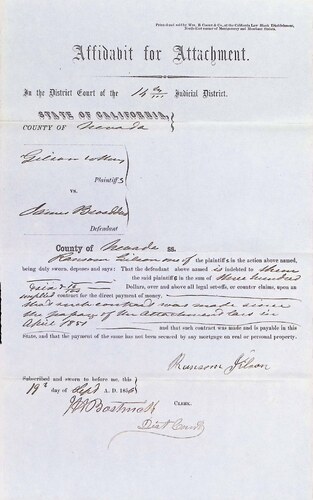 Printed and sold by Wm. B. Cooke & Co., at the California Law Blank Establishment,
North-East corner of Montgomery and Merchant Streets.
Affidavit for Attachment.
In the District Court of the 14th Judicial District.
STATE OF CALIFORNIA,
COUNTY OF Nevada
Gilson
Plaintiff s
vs.
James
Defendant
County of Nevada ss.
Ransom Gilson one of the plaintiff s in the action above named,
being duly sworn, deposes and says: That the defendant above named is indebted to them
the said plaintiff s in the sum of three hundred
Dollars, over and above all legal set-offs, or counter claims, upon an
implied contract for the direct payment of money.
that such contract was made since
the passage of the Attachment Law in
April 185
and that such contract was made and is payable in this
State, and that the payment of the same has not been secured by any mortgage on real or personal property.
Ransom Gilson
Subscribed and sworn to before me, this
19th day of Sept A. D. 185
Bostwick Clerk.
Dist Court